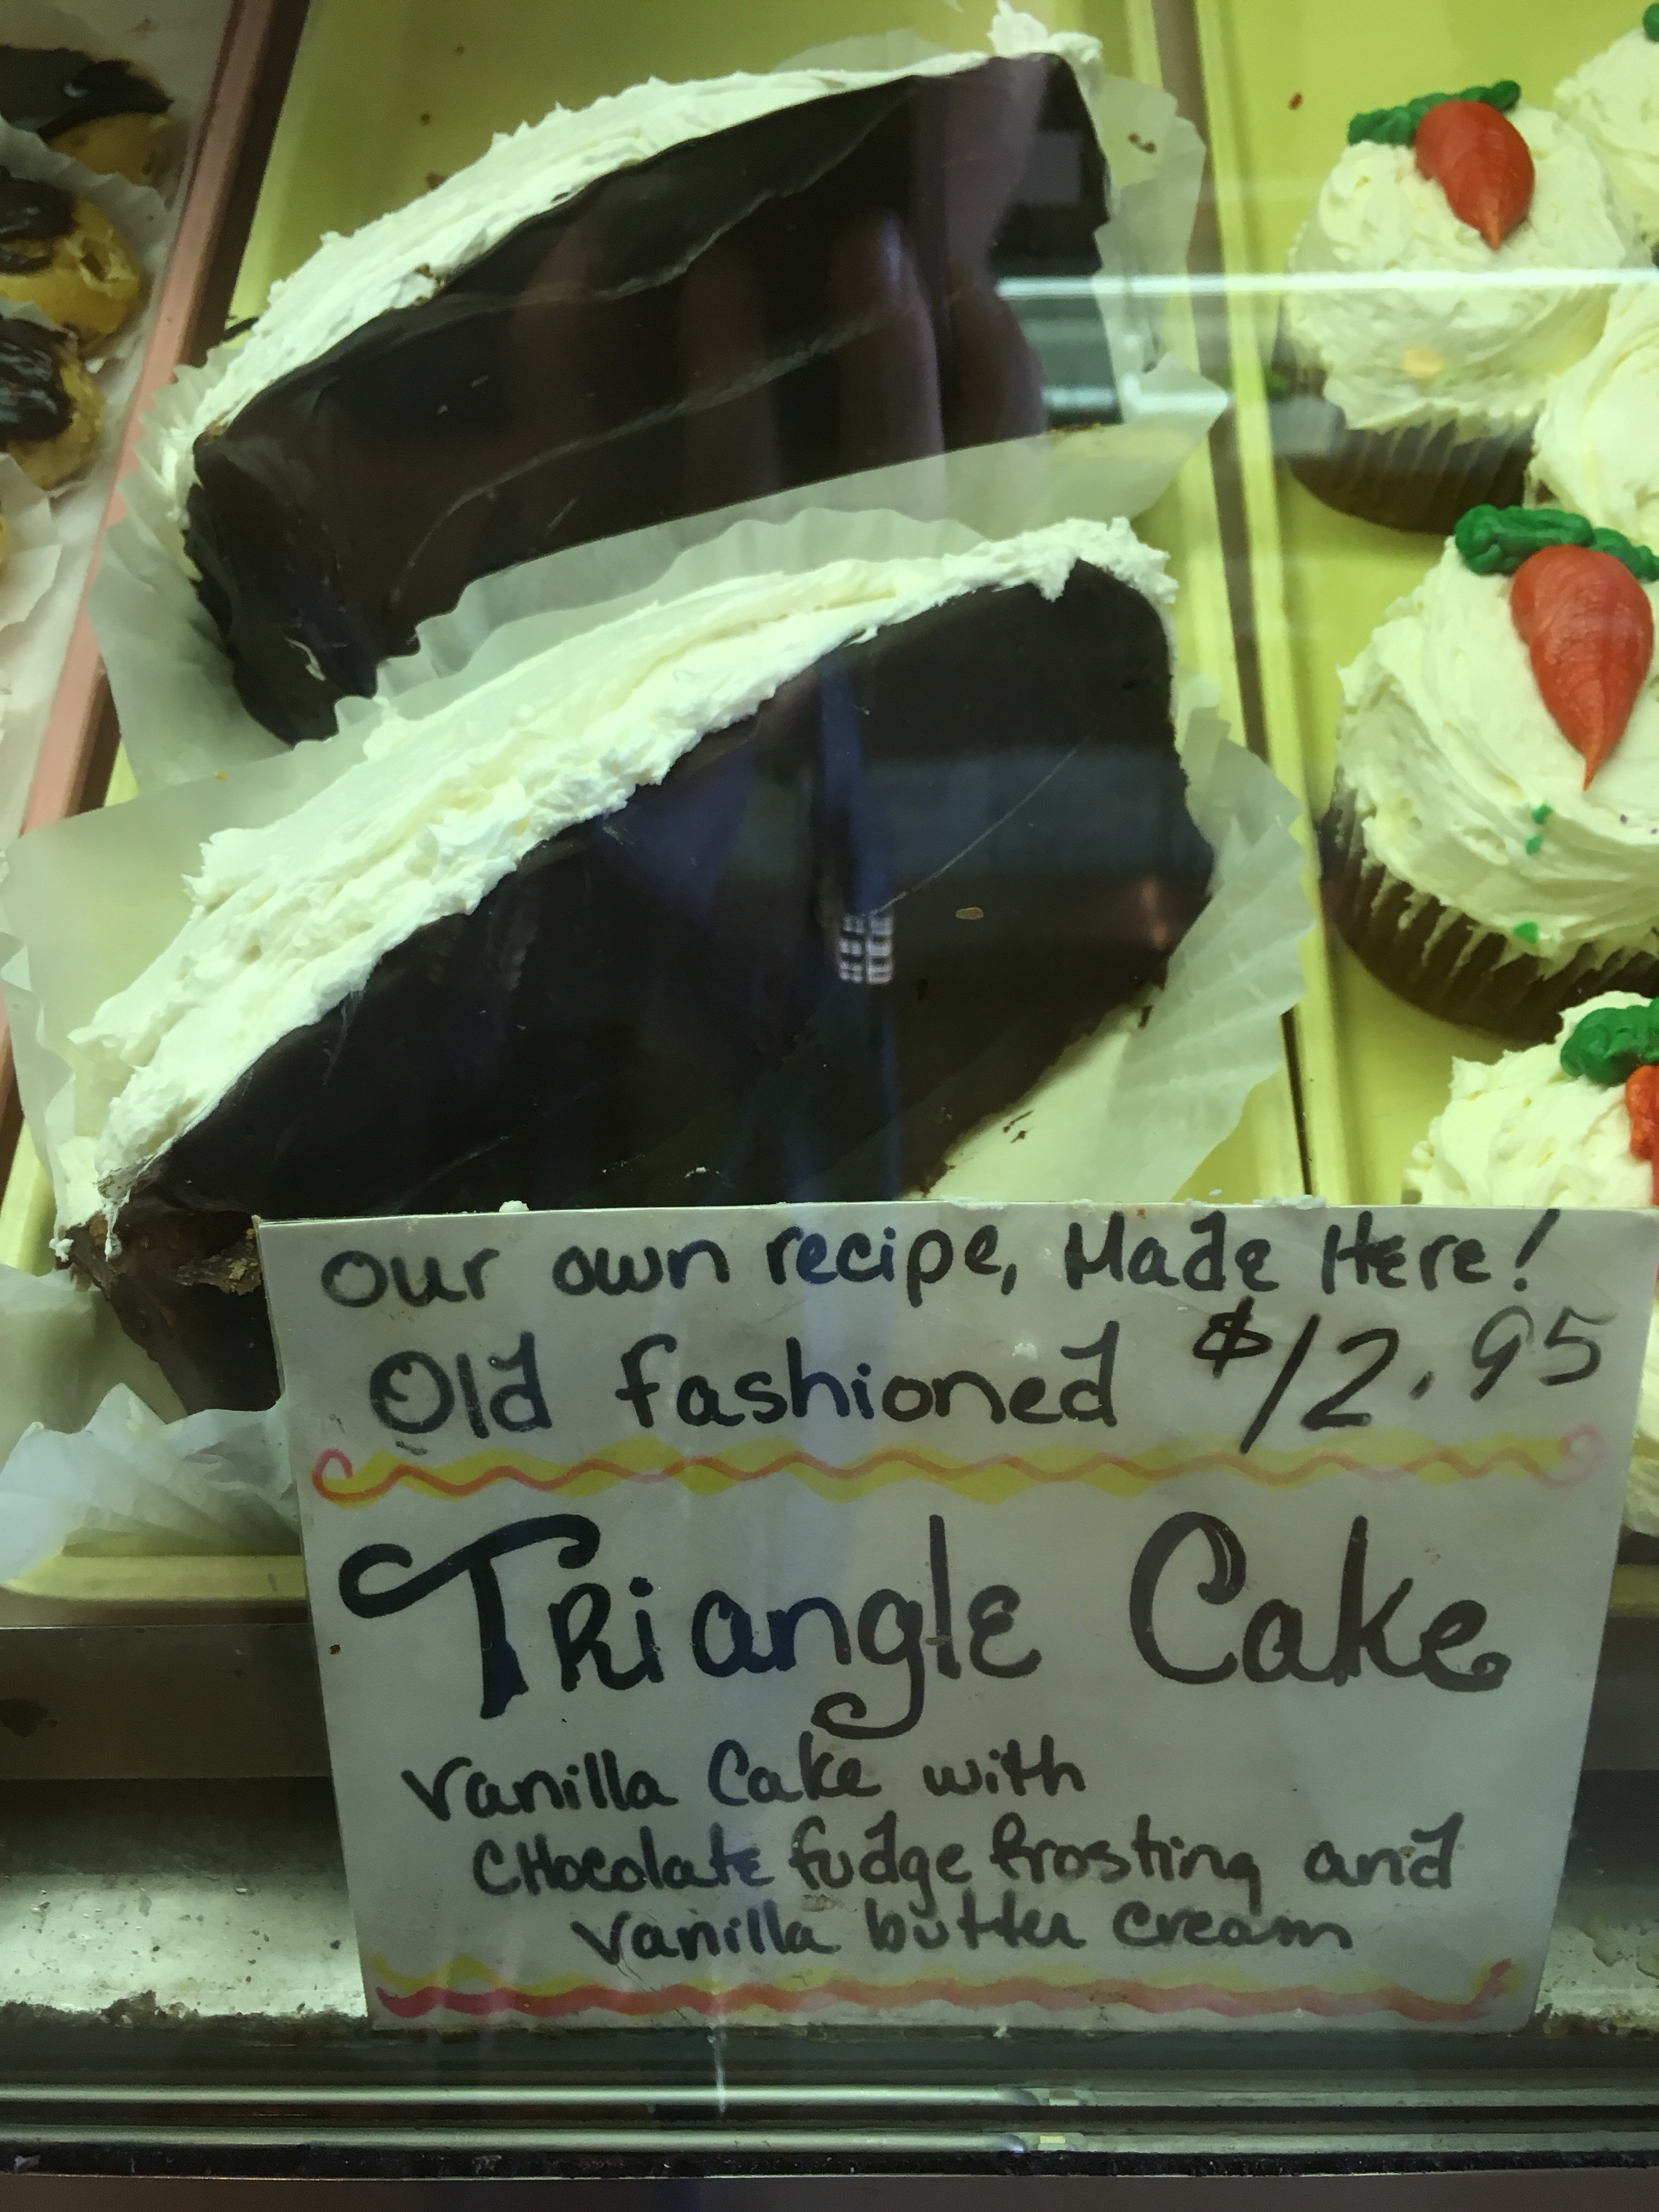 Our own recipe, Made Here!
Old fashioned $12.95
Triangle Cake
Vanilla Cake with
CHocolate fudge frosting and
Vanilla butter cream